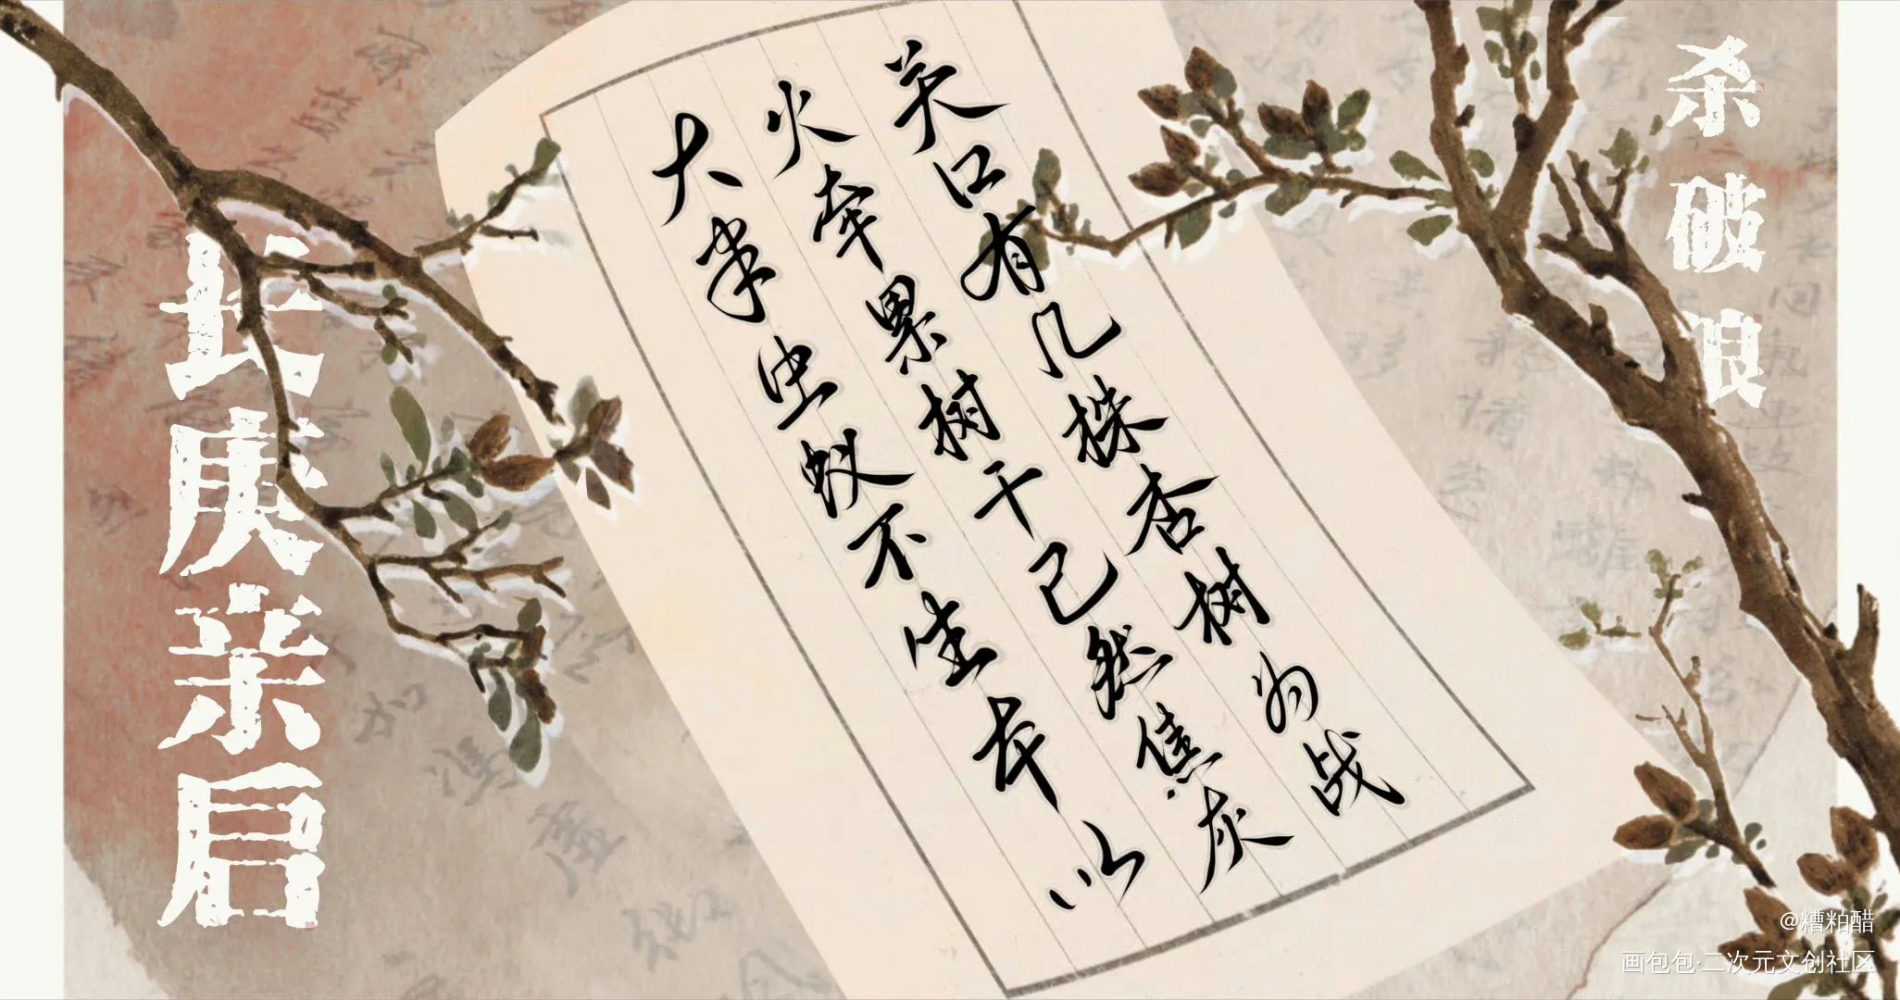 杀破浪
关口有几株杏树为战
火牵累树干已然焦灰
大半虫蚁不生本以
长庚亲启
@糟粕醋
画包包·二次元文创社区